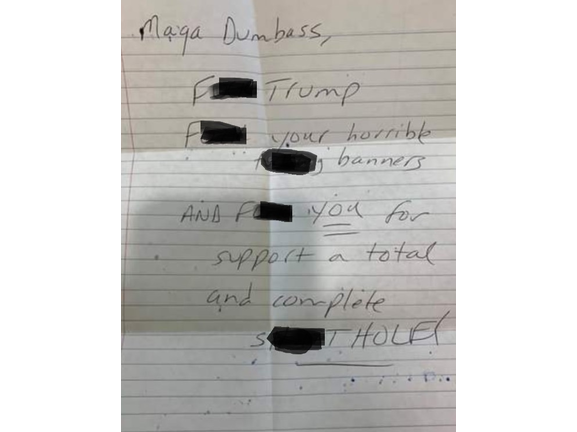 Maga Dumbass,
F Trump
F your horrible
banners
AND F you for
support a total
and complete
S T HOLE!